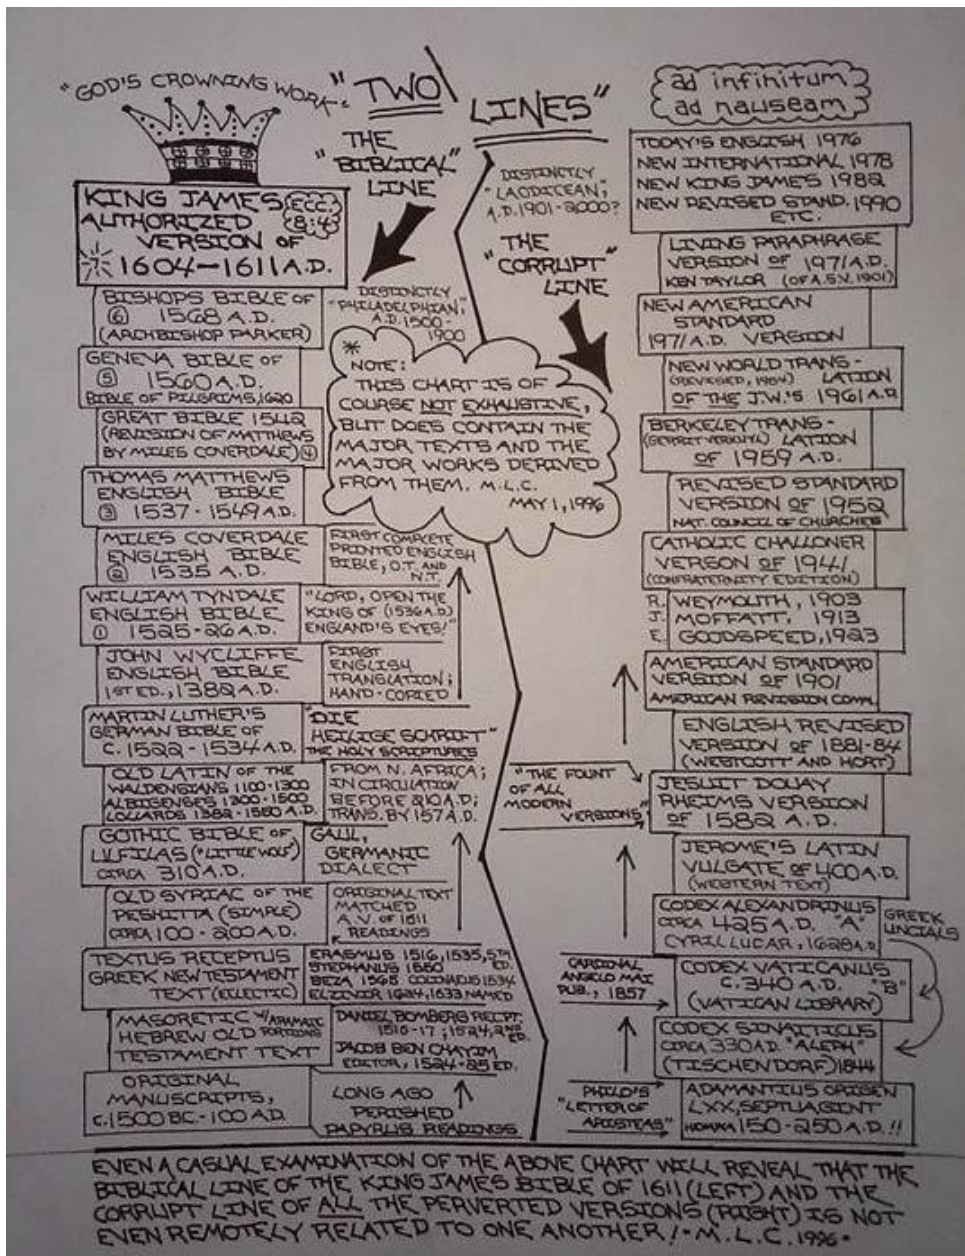 "GOD'S CROWNING WORK"
"TWO LINES"
THE
"BIBLICAL"
LINE
KING JAMES
AUTHORIZED
VERSION OF
1604-1611 A.D.
ECC.
8:4
BISHOPS BIBLE OF
⑥ 1568 A.D.
(ARCHBISHOP PARKER)
GENEVA BIBLE OF
⑤ 1560 A.D.
BIBLE OF PILGRIMS, 1620
GREAT BIBLE 1542
(REVISION OF MATTHEWS
BY MILES COVERDALE) ④
THOMAS MATTHEWS
ENGLISH BIBLE
③ 1537-1549 A.D.
MILES COVERDALE
ENGLISH BIBLE
② 1535 A.D.
FIRST COMPLETE
PRINTED ENGLISH
BIBLE, O.T. AND
N.T.
WILLIAM TYNDALE
ENGLISH BIBLE
① 1525-26 A.D.
"LORD, OPEN THE
KING OF (1536 A.D.)
ENGLAND'S EYES!"
JOHN WYCLIFFE
ENGLISH BIBLE
1ST ED., 1382 A.D.
FIRST
ENGLISH
TRANSLATION;
HAND-COPIED
MARTIN LUTHER'S
GERMAN BIBLE OF
C. 1522-1534 A.D.
"DIE
HEILIGE SCHRIFT"
THE HOLY SCRIPTURES
OLD LATIN OF THE
WALDENSIANS 1100-1300
ALBIGENSES 1300-1500
LOLLARDS 1382-1550 A.D.
FROM N. AFRICA;
IN CIRCULATION
BEFORE 210 A.D;
TRANS. BY 157 A.D.
GOTHIC BIBLE OF
ULFILAS ("LITTLE WOLF")
CIRCA 310 A.D.
GAUL,
GERMANIC
DIALECT
OLD SYRIAC OF THE
PESHITTA (SIMPLE)
CIRCA 100-200 A.D.
ORIGINAL TEXT
MATCHED
A.V. OF 1611
READINGS
TEXTUS RECEPTUS
GREEK NEW TESTAMENT
TEXT (ECLECTIC)
ERASMUS 1516, 1535, 5TH ED.
STEPHANUS 1550
BEZA 1565 COLINAEUS 1534
ELZIVIR 1624, 1633 NAMED
MASORETIC W/ARAMAIC PORTIONS
HEBREW OLD
TESTAMENT TEXT
DANIEL BOMBERG RECPT;
1516-17; 1524, 2ND ED.
JACOB BEN CHAYIM
EDITOR, 1524-25 ED.
ORIGINAL
MANUSCRIPTS,
C. 1500 BC.-100 A.D.
LONG AGO
PERISHED
PAPYRUS READINGS
DISTINCTLY
"PHILADELPHIAN,"
A.D. 1500-
1900
*
NOTE:
THIS CHART IS OF
COURSE NOT EXHAUSTIVE,
BUT DOES CONTAIN THE
MAJOR TEXTS AND THE
MAJOR WORKS DERIVED
FROM THEM. M.L.C.
MAY 1, 1996
DISTINCTLY
"LAODICEAN,"
A.D. 1901-2000?
THE
"CORRUPT"
LINE
ad infinitum
ad nauseam
TODAY'S ENGLISH 1976
NEW INTERNATIONAL 1978
NEW KING JAMES 1982
NEW REVISED STAND. 1990
ETC.
LIVING PARAPHRASE
VERSION OF 1971 A.D.
KEN TAYLOR (OF A.S.V. 1901)
NEW AMERICAN
STANDARD
1971 A.D. VERSION
NEW WORLD TRANS-
(REVISED, 1984) LATION
OF THE J.W.'S 1961 A.D.
BERKELEY TRANS-
(GERRIT VERKUYL) LATION
OF 1959 A.D.
REVISED STANDARD
VERSION OF 1952
NAT. COUNCIL OF CHURCHES
CATHOLIC CHALLONER
VERSON OF 1941
(CONFRATERNITY EDITION)
R. WEYMOUTH, 1903
J. MOFFATT, 1913
E. GOODSPEED, 1923
AMERICAN STANDARD
VERSION OF 1901
AMERICAN REVISION COMM.
ENGLISH REVISED
VERSION OF 1881-84
(WESTCOTT AND HORT)
"THE FOUNT
OF ALL
MODERN
VERSIONS"
JESUIT DOUAY
RHEIMS VERSION
OF 1582 A.D.
JEROME'S LATIN
VULGATE OF 400 A.D.
(WESTERN TEXT)
CODEX ALEXANDRINUS
CIRCA 425 A.D. "A"
CYRIL LUCAR, 1628 A.D.
GREEK
UNCIALS
CARDINAL
ANGELO MAI
PUB., 1857
CODEX VATICANUS
C. 340 A.D. "B"
(VATICAN LIBRARY)
CODEX SINAITICUS
CIRCA 330 A.D. "ALEPH"
(TISCHENDORF) 1844
PHILO'S
"LETTER OF
ARISTEAS"
ADAMANTIUS ORIGEN
LXX, SEPTUAGINT
150-250 A.D.!!
EVEN A CASUAL EXAMINATION OF THE ABOVE CHART WILL REVEAL THAT THE
BIBLICAL LINE OF THE KING JAMES BIBLE OF 1611 (LEFT) AND THE
CORRUPT LINE OF ALL THE PERVERTED VERSIONS (RIGHT) IS NOT
EVEN REMOTELY RELATED TO ONE ANOTHER! - M.L.C. 1996-